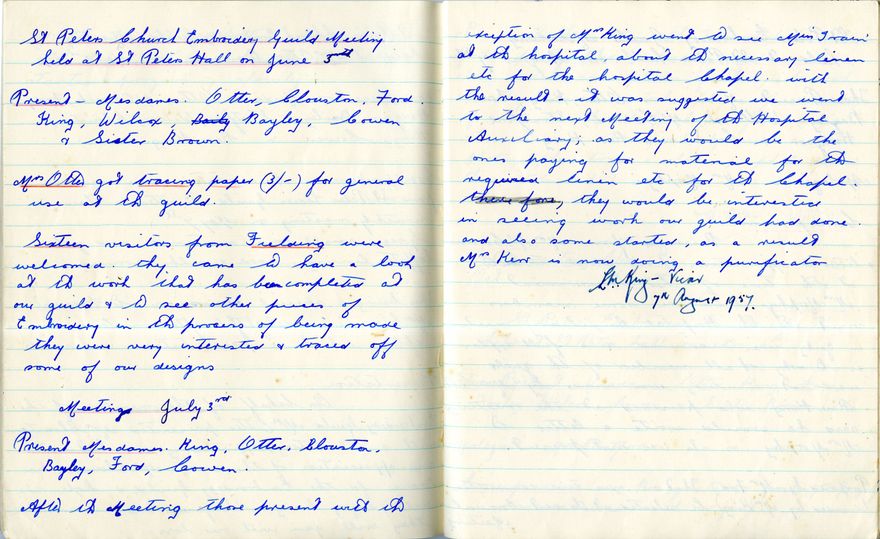 St Peters Church Embroidery Guild Meeting
held at St Peters Hall on June 5th
Present - Mesdames. Otter, Clouston, Ford.
King, Wilcox, Baily Bayley, Cowen
& Sister Brown.
Mrs Otter got tracing paper (3/-) for general
use at th guild.
Sixteen visitors from Fielding were
welcomed. they came to have a look
at th work that has been completed at
our guild & to see other pieces of
Embroidery in th process of being made
they were very interested & traced off
some of our designs
Meetings July 3rd
Present Mesdames. King, Otter, Clouston,
Bayley, Ford, Cowen.
After th Meeting those present with th
exception of Mrs King went to see Miss Train
at th hospital, about th necessary linen
etc for the hospital Chapel. with
the result - it was suggested we went
to the next Meeting of th Hospital
Auxiliary; as they would be the
ones paying for material for th
required linen etc for th Chapel.
therefore, they would be interested
in seeing work our guild had done.
and also some started, as a result
Mrs Kerr is now doing a purificator
King - Vicar
7th August 1957.